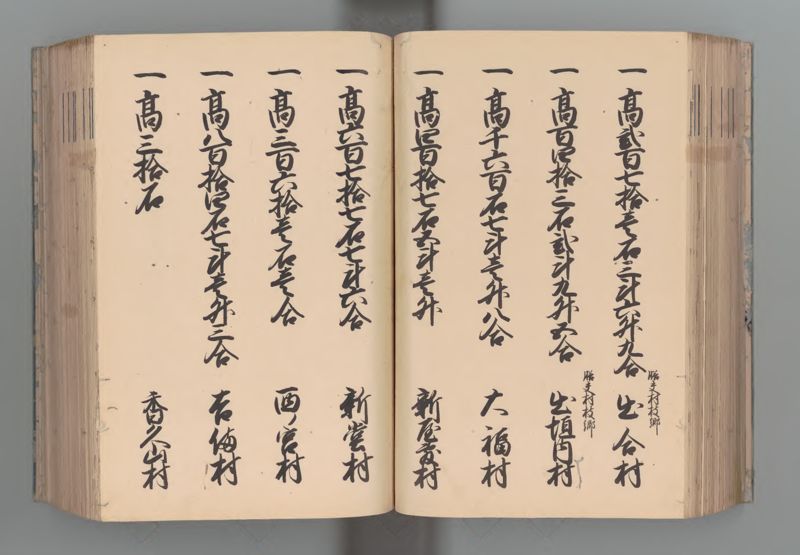 一高弐百七拾壱石三斗六升九合
勝
村枝郷
出合村
一高百四拾三石弐斗九升五合
勝
村枝郷
出垣内村
一高千六百石七斗壱升八合
大福村
一高四百拾七石五斗壱升
新屋敷村
一高六百七拾七石七斗六合
新堂村
一高三百六拾壱石壱合
西ノ宮村
一高八百拾四石七斗壱升三合
吉備村
一高三拾石
香久山村